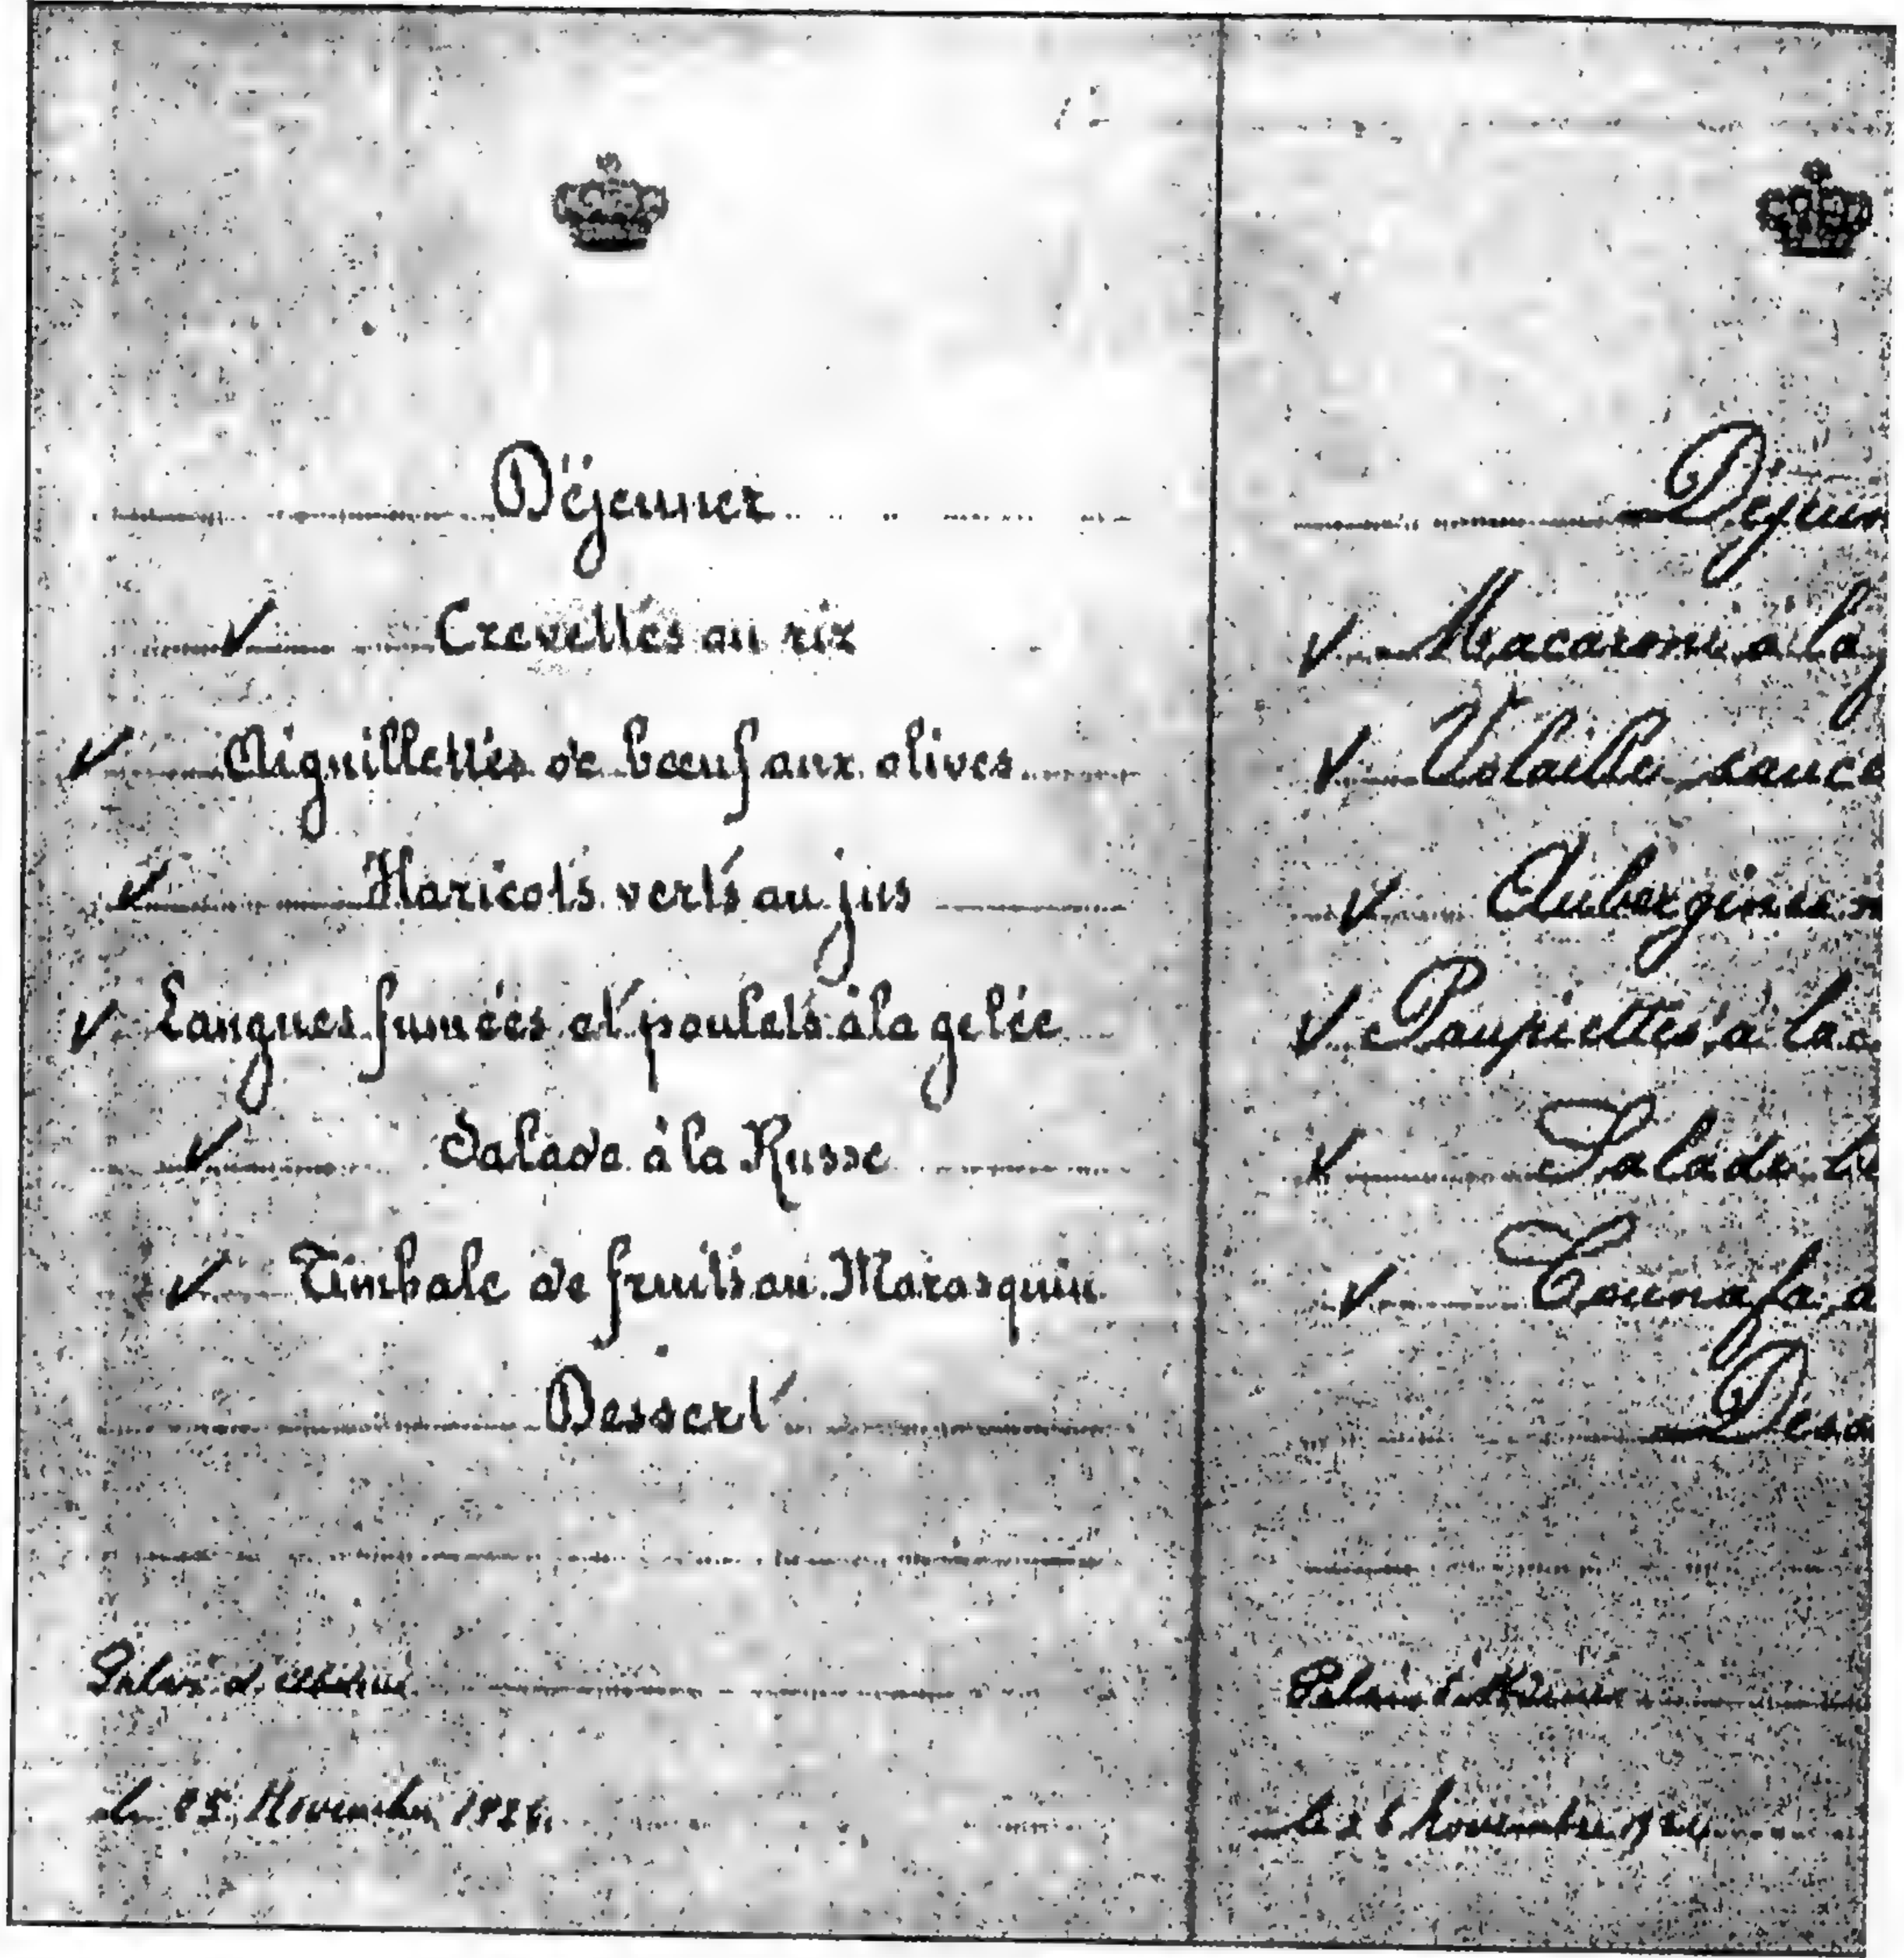 Déjeuner
Crevettes au riz
Aiguillettes de bœuf aux olives
Haricots verts au jus
Langues fumées et poulets à la gelée
Salade à la Russe
Timbale de fruits au Marasquin
Dessert
Palais d'
le 25 Novembre 192
Déjeun
Macaroni à la
Volaille sauce
Aubergines
Paupiettes à la
Salade
Counafa a
Dess
Palais d'
le 26 Novembre 192